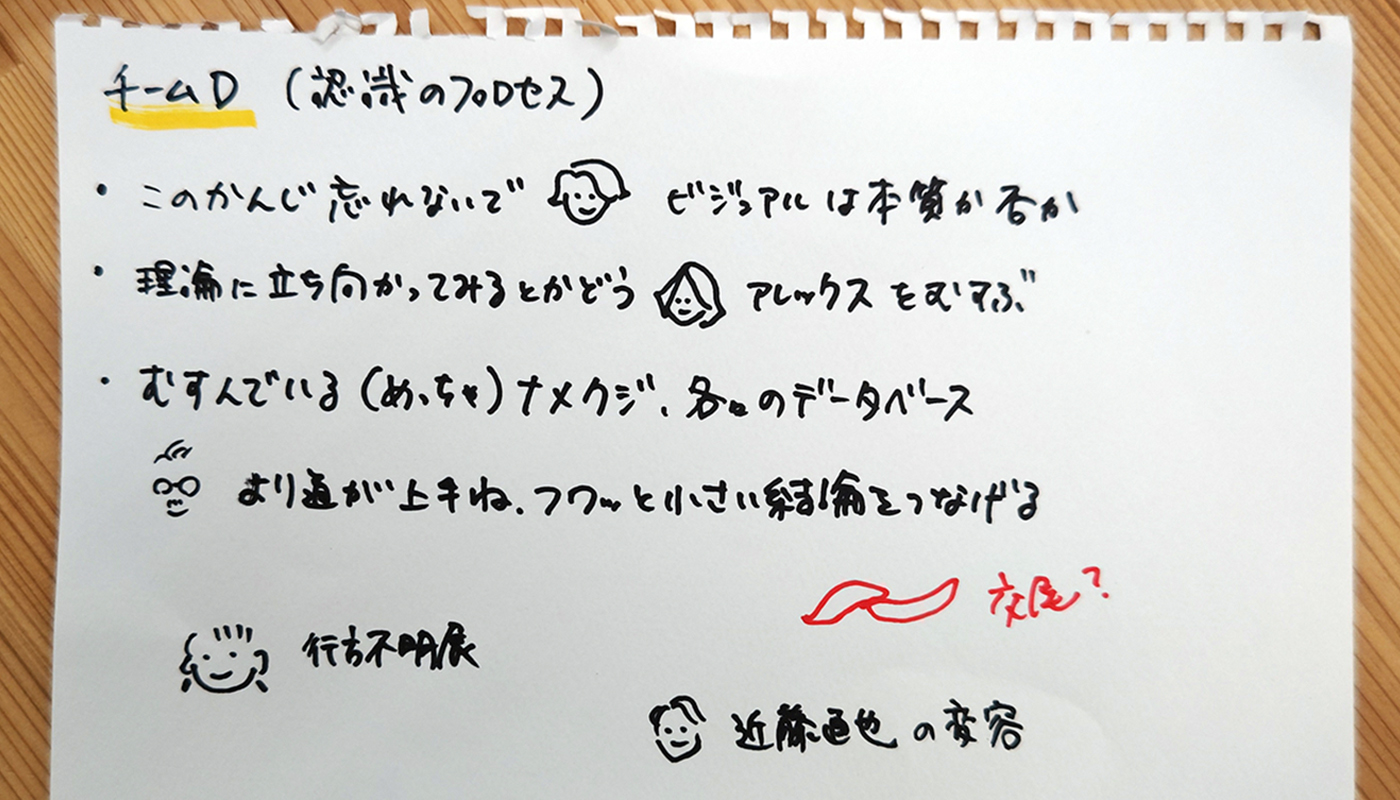 チームD (認識のプロセス)
・このかんじ忘れないで ビジュアルは本質か否か
・理論に立ち向かってみるとかどう アレックスをむすぶ
・むすんでいる(めっちゃ)ナメクジ、各々のデータベース
より道が上手ね、フワッと小さい結論をつなげる
交尾?
行方不明展
近藤直也の変容